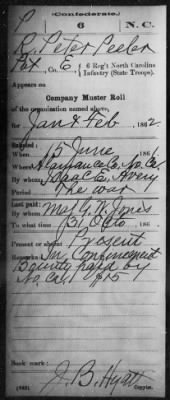 (Confederate.)
P 6 N.C.
R. Peter Peeler
Pvt, Co. E, 6 Reg't North Carolina
Infantry (State Troops).
Appears on
Company Muster Roll
of the organization named above,
for Jan & Feb, 1862
Enlisted:
When 15 June, 1861
Where Alamance Co. No. Ca.
By whom Isaac E. Avery
Period The war
Last paid:
By whom Maj G. W. Jones
To what time 31 Octo, 186
Present or absent Present
Remarks: In Confinement
Bounty paid by
No. Ca. $15
Book mark:
J. B. Hyatt
(642) Copyist.